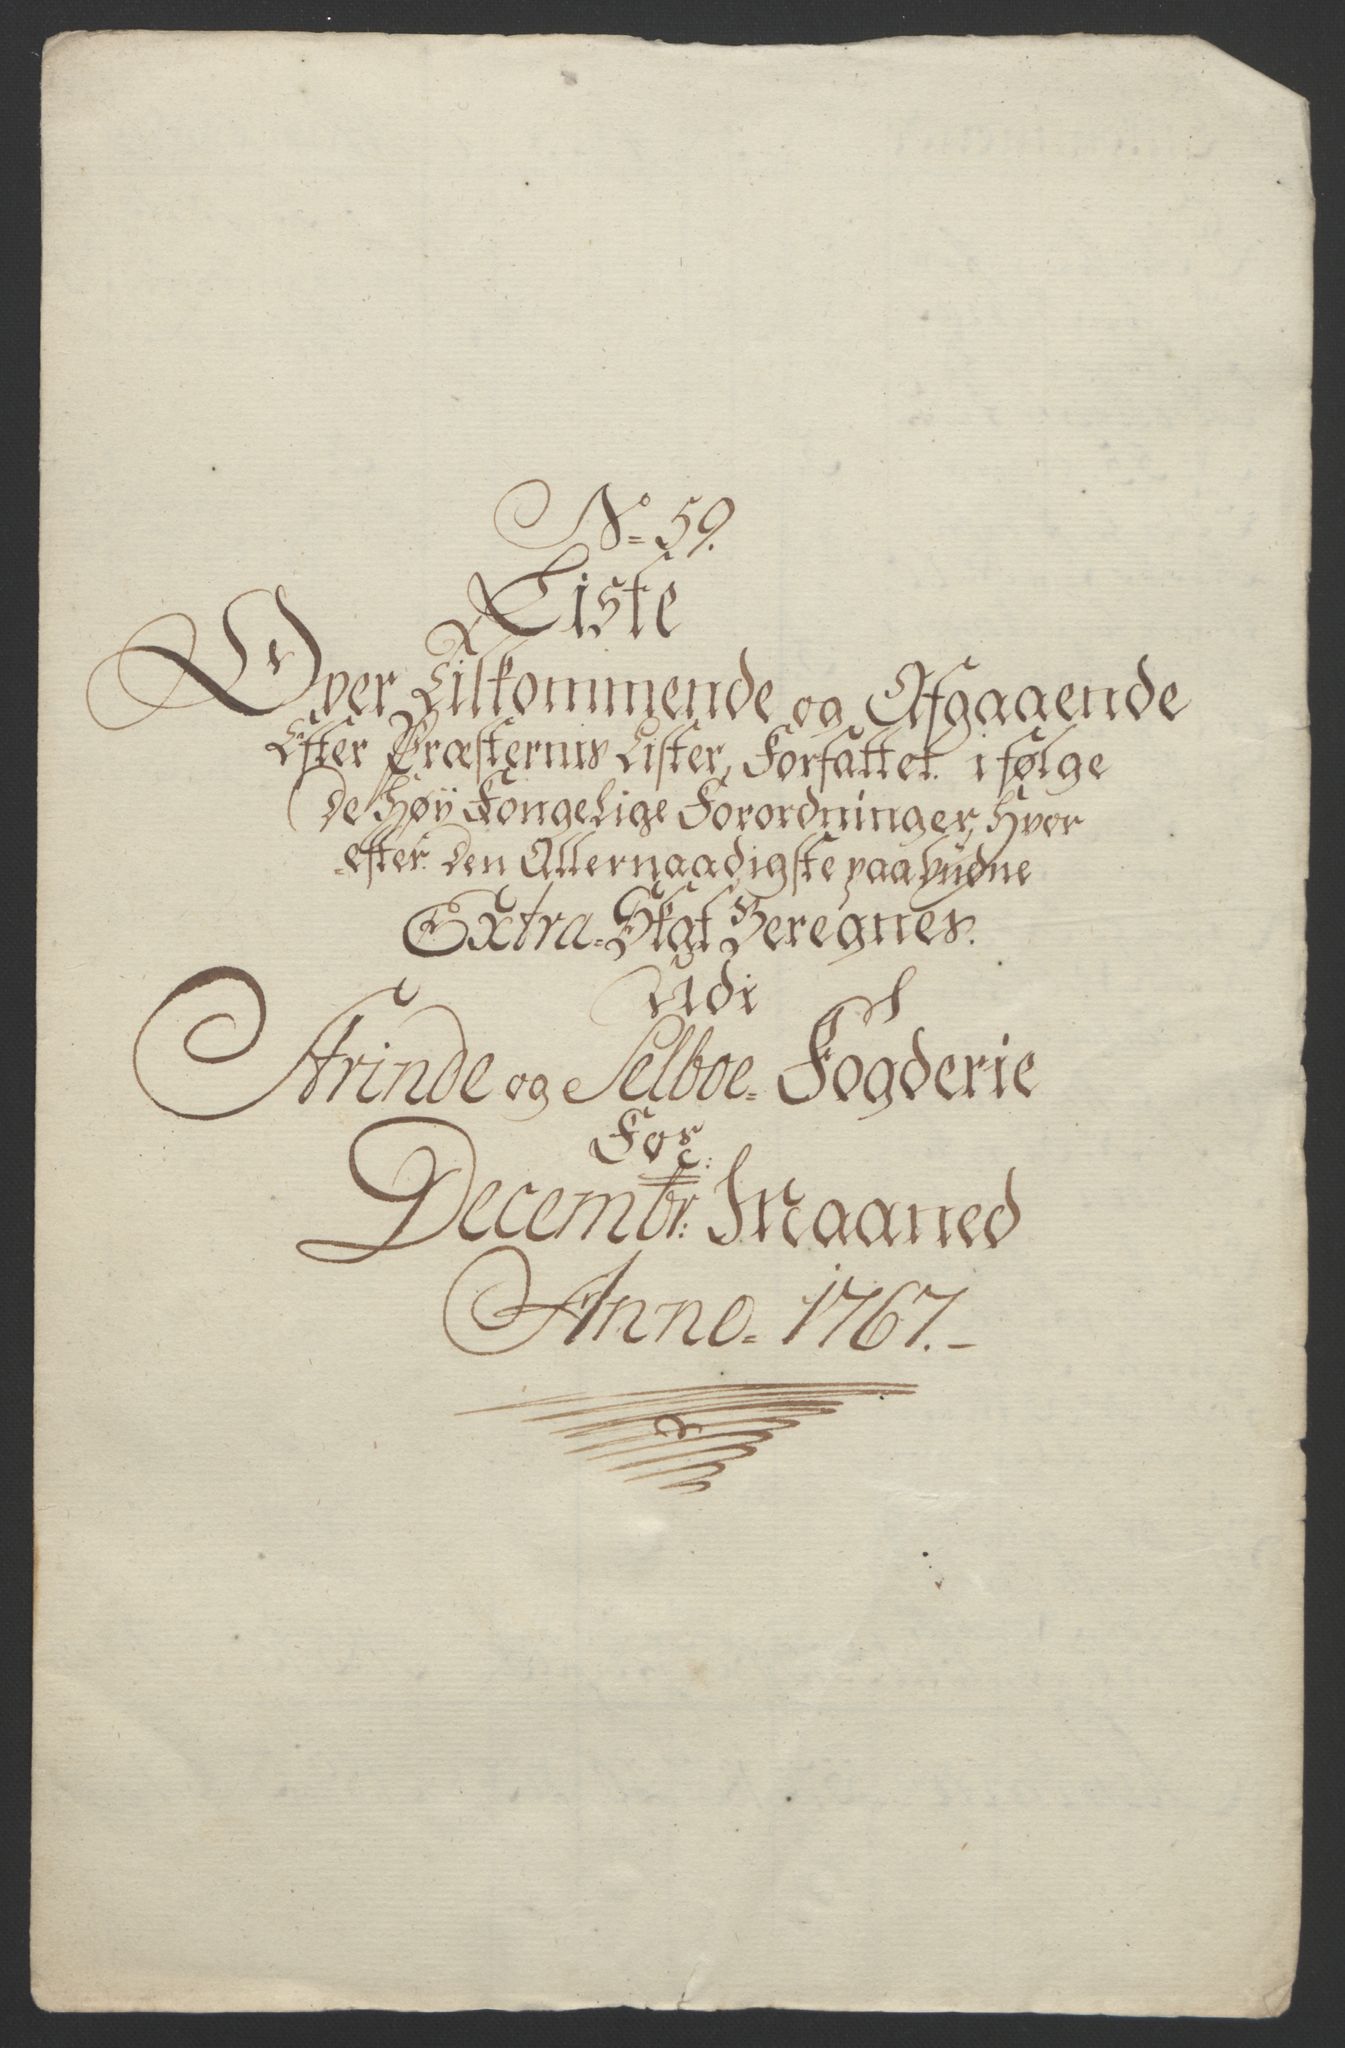 No 59.
Liste
Over Tilkommende og Afgagende
Efter Præsternis Lister, Forfattet i følge
de Høy Kongelige Forordninger, Hvor
efter den Allernaadigste paabudne
Extra-Skat Beregnes.
Udi
Strinde og Selboe Fogderie
For
Decembr: Maaned
Anno 1767.